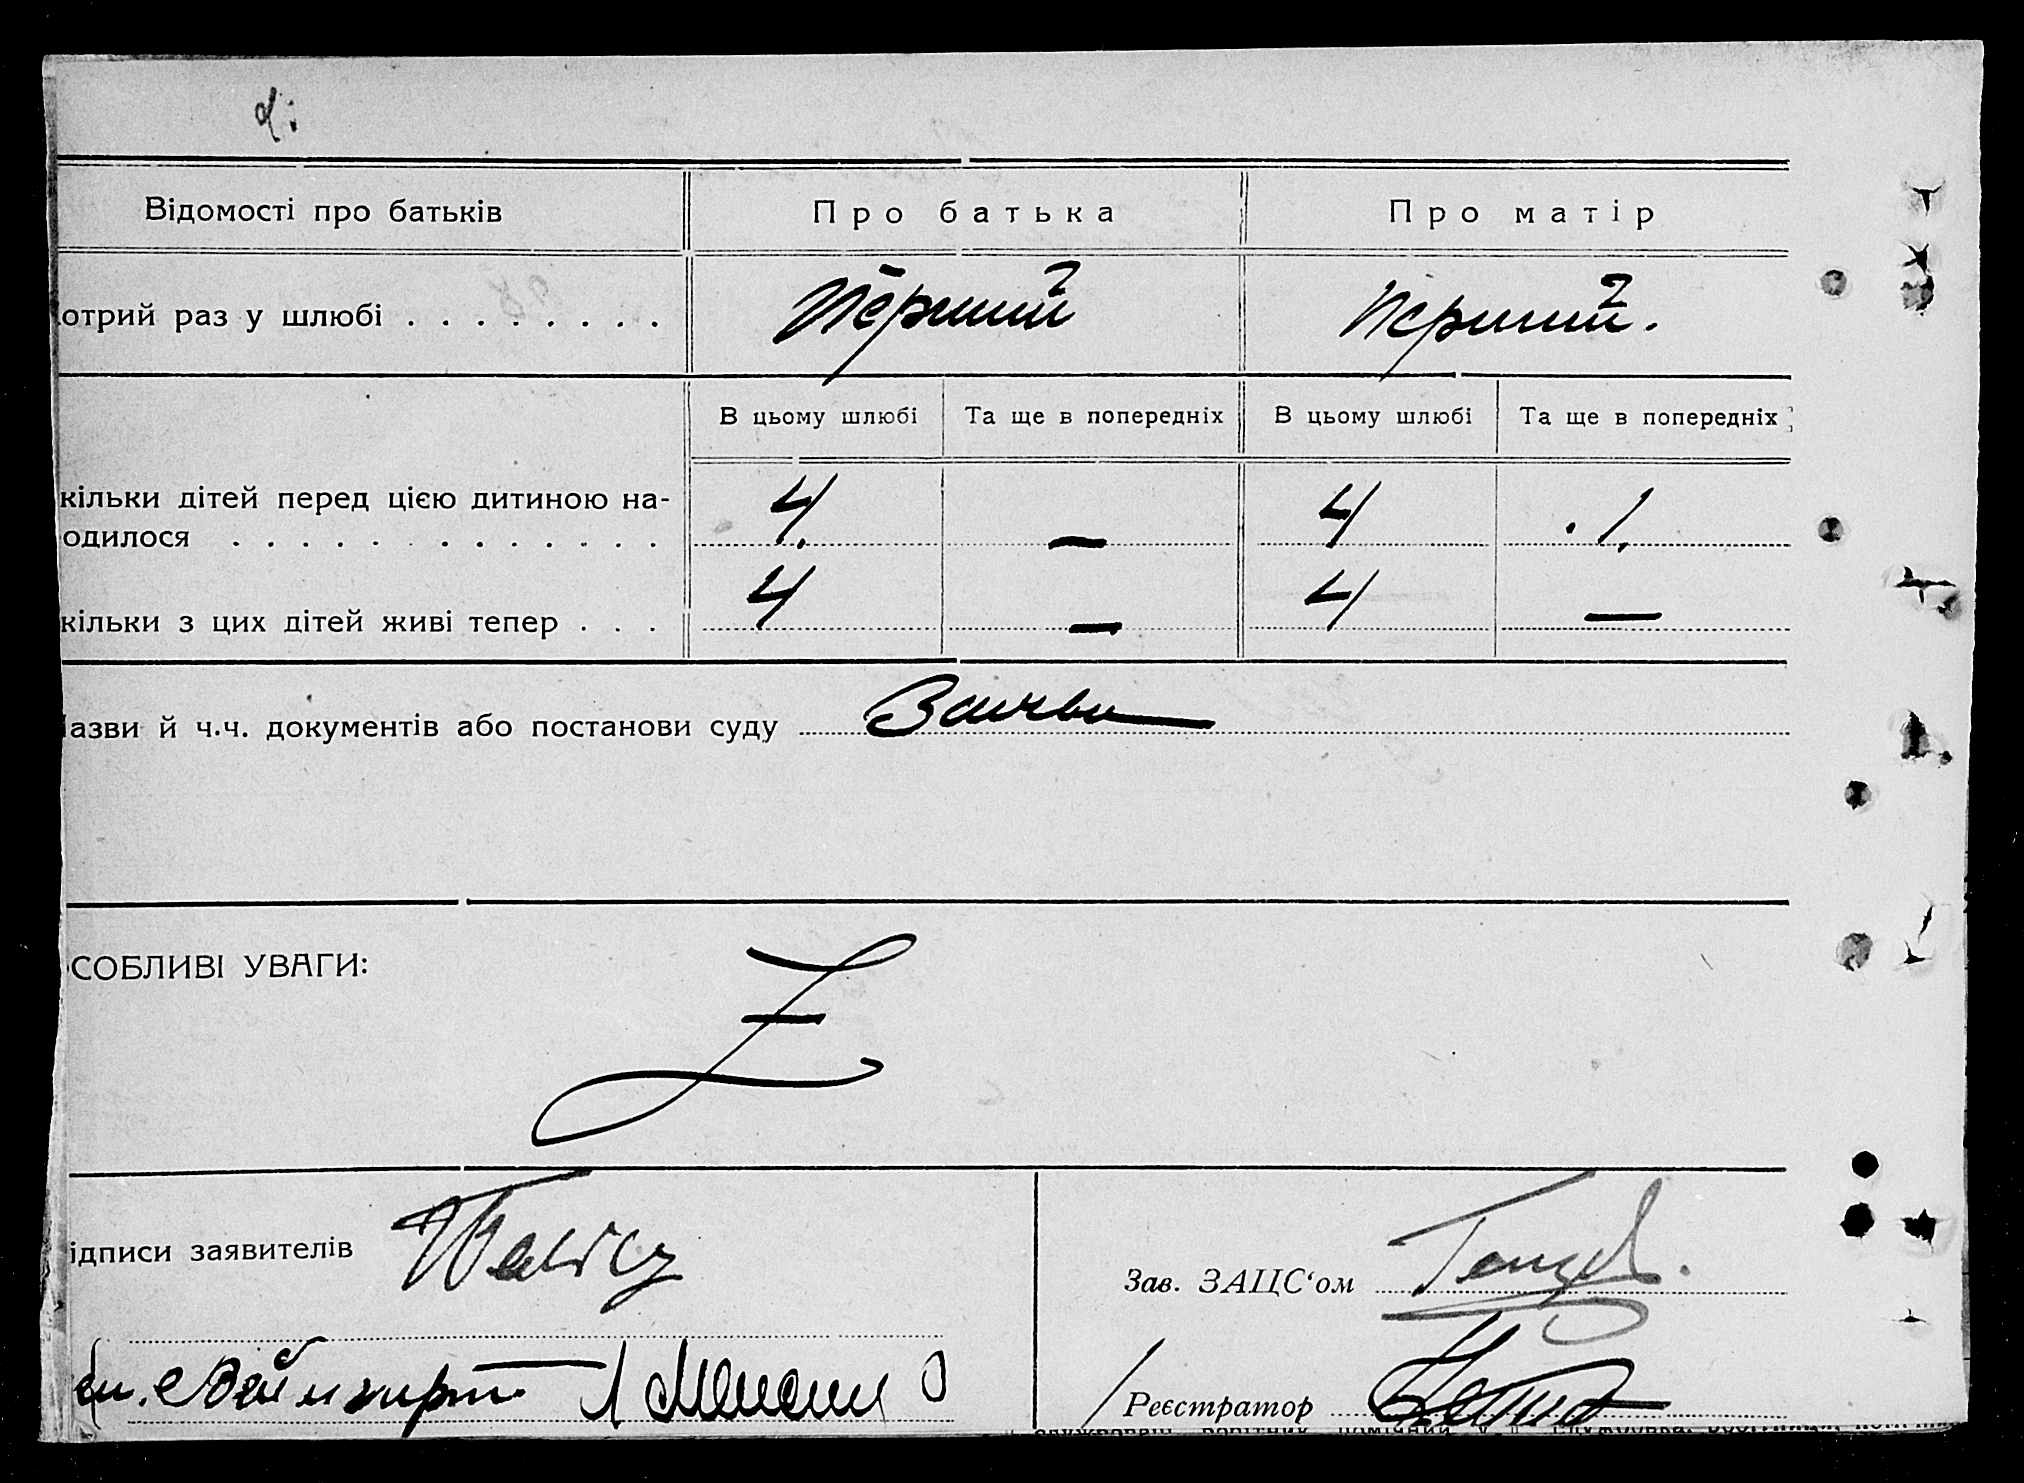 Відомості про батьків Про батька Про матір
отрий раз у шлюбі . . . . . . . . Перший Перший.
В цьому шлюбі Та ще в попередніх В цьому шлюбі Та ще в попередніх
кільки дітей перед цією дитиною на-
одилося . . . . . . . . . . . . . 4. — 4 . 1.
кільки з цих дітей живі тепер . . . 4 — 4 —
азви й ч.ч. документів або постанови суду
СОБЛИВІ УВАГИ:
ідписи заявителів
Зав. ЗАЦС‘ом
Реєстратор